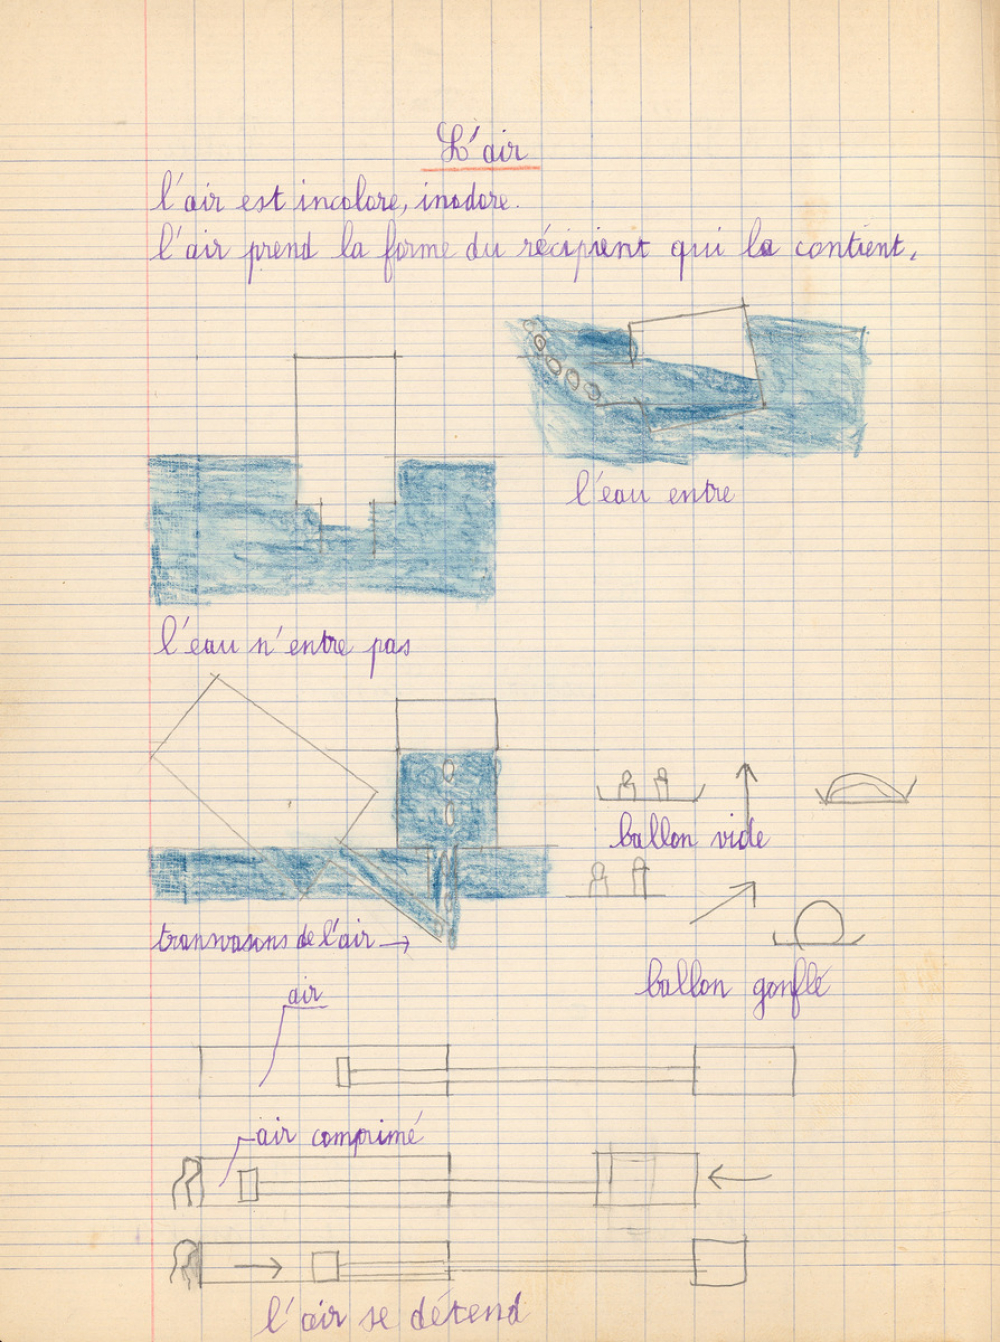 L'air
l'air est incolore, inodore.
l'air prend la forme du récipient qui la contient,
l'eau entre
l'eau n'entre pas
ballon vide
transvasons de l'air
ballon gonflé
air
air comprimé
l'air se détend